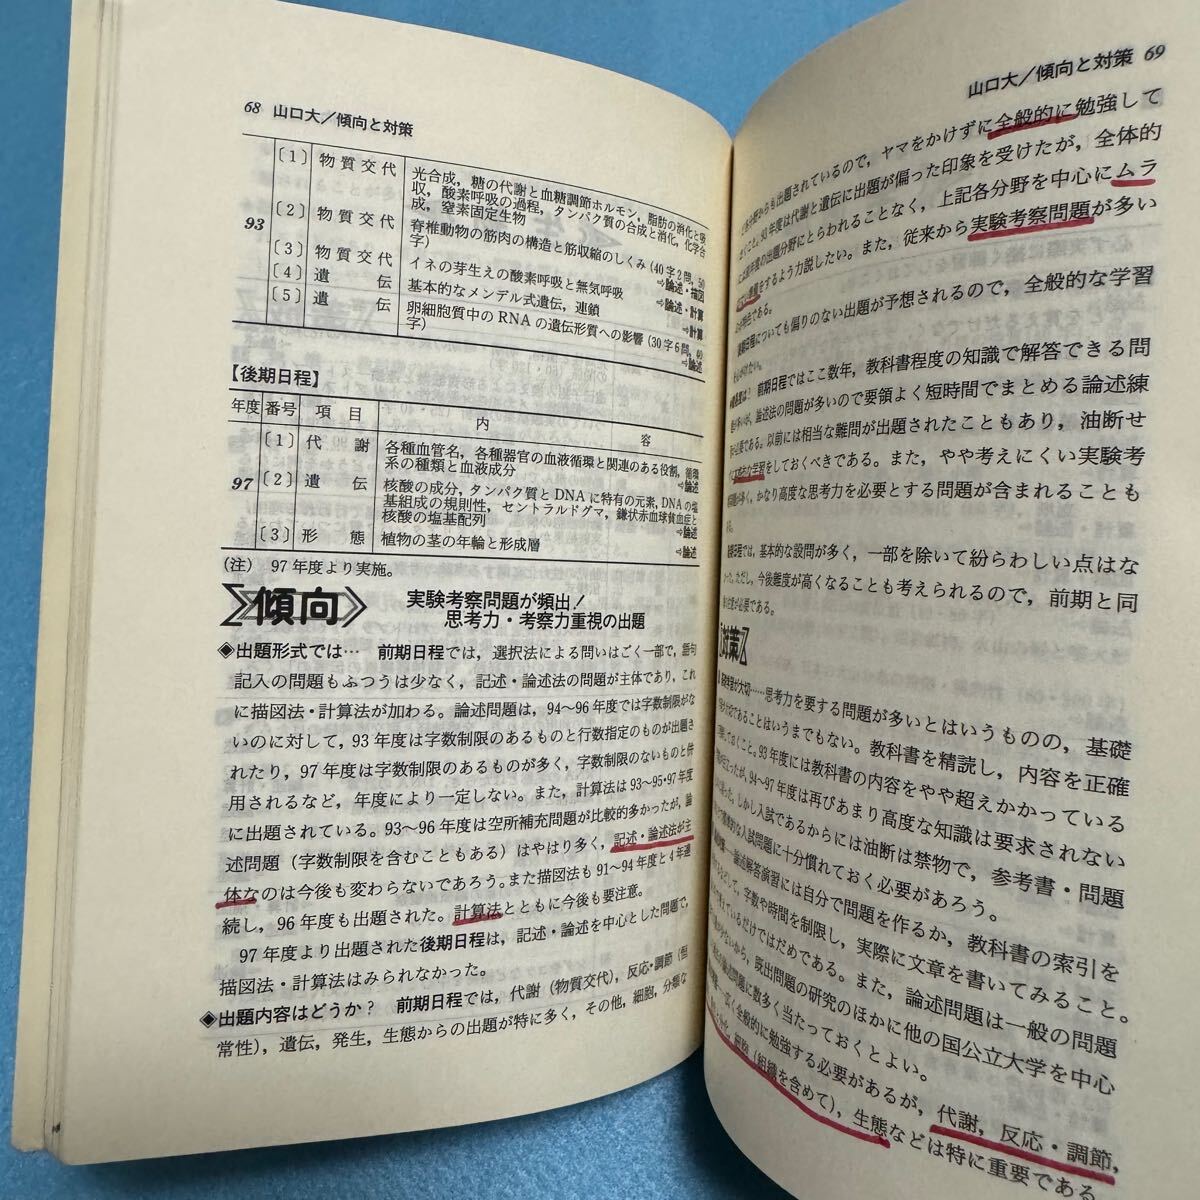 68 山口大／傾向と対策
〔1〕 物質交代 光合成，糖の代謝と血糖調節ホルモン，脂肪の消化と吸
収，酸素呼吸の過程，タンパク質の合成と消化，化学合
成，窒素固定生物
93
〔2〕 物質交代 脊椎動物の筋肉の構造と筋収縮のしくみ（40字2問，50
字） ⇨論述・描図
〔3〕 物質交代 イネの芽生えの酸素呼吸と無気呼吸 ⇨論述・計算
〔4〕 遺伝 基本的なメンデル式遺伝，連鎖 ⇨計算
〔5〕 遺伝 卵細胞質中のRNAの遺伝形質への影響（30字6問，40
字） ⇨論述
【後期日程】
年度 番号 項目 内容
97
〔1〕 代謝 各種血管名，各種器官の血液循環と関連のある役割，循環
系の種類と血液成分 ⇨論述
〔2〕 遺伝 核酸の成分，タンパク質とDNAに特有の元素，DNAの塩
基組成の規則性，セントラルドグマ，鎌状赤血球貧血症と
核酸の塩基配列 ⇨論述
〔3〕 形態 植物の茎の年輪と形成層 ⇨論述
（注） 97年度より実施。
傾向 実験考察問題が頻出！
思考力・考察力重視の出題
◈出題形式では… 前期日程では，選択法による問いはごく一部で，語句
記入の問題もふつうは少なく，記述・論述法の問題が主体であり，これ
に描図法・計算法が加わる。論述問題は，94～96年度では字数制限がな
いのに対して，93年度は字数制限のあるものと行数指定のものが出題さ
れたり，97年度は字数制限のあるものが多く，字数制限のないものと併
用されるなど，年度により一定しない。また，計算法は93～95・97年度
に出題されている。93～96年度は空所補充問題が比較的多かったが，論
述問題（字数制限を含むこともある）はやはり多く，記述・論述法が主
体なのは今後も変わらないであろう。また描図法も91～94年度と4年連
続し，96年度も出題された。計算法とともに今後も要注意。
97年度より出題された後期日程は，記述・論述を中心とした問題で，
描図法・計算法はみられなかった。
◈出題内容はどうか？ 前期日程では，代謝（物質交代），反応・調節（恒
常性），遺伝，発生，生態からの出題が特に多く，その他，細胞，分類な
山口大／傾向と対策 69
分野からも出題されているので，ヤマをかけずに全般的に勉強して
93年度は代謝と遺伝に出題が偏った印象を受けたが，全体的
年度の出題分野にとらわれることなく，上記各分野を中心にムラ
をするよう力説したい。また，従来から実験考察問題が多い
特色である。
後期日程についても偏りのない出題が予想されるので，全般的な学習
前期日程ではここ数年，教科書程度の知識で解答できる問
論述法の問題が多いので要領よく短時間でまとめる論述練
必要である。以前には相当な難問が出題されたこともあり，油断せ
学習をしておくべきである。また，やや考えにくい実験考
かなり高度な思考力を必要とする問題が含まれることも
日程では，基本的な設問が多く，一部を除いて紛らわしい点はな
ただし，今後難度が高くなることも考えられるので，前期と同
注意が必要である。
対策
学習が大切……思考力を要する問題が多いとはいうものの，基礎
であることはいうまでもない。教科書を精読し，内容を正確
しておくこと。93年度には教科書の内容をやや超えかかっている
94～97年度は再びあまり高度な知識は要求されない
しかし入試であるからには油断は禁物で，参考書・問題
な入試問題に十分慣れておく必要があろう。
論述解答演習には自分で問題を作るか，教科書の索引を
字数や時間を制限し，実際に文章を書いてみること。
ているだけではだめである。また，論述問題は一般の問題
ないから，既出問題の研究のほかに他の国公立大学を中心
問題に数多く当たっておくとよい。
広く全般的に勉強する必要があるが，代謝，反応・調節，
（組織を含めて），生態などは特に重要である。